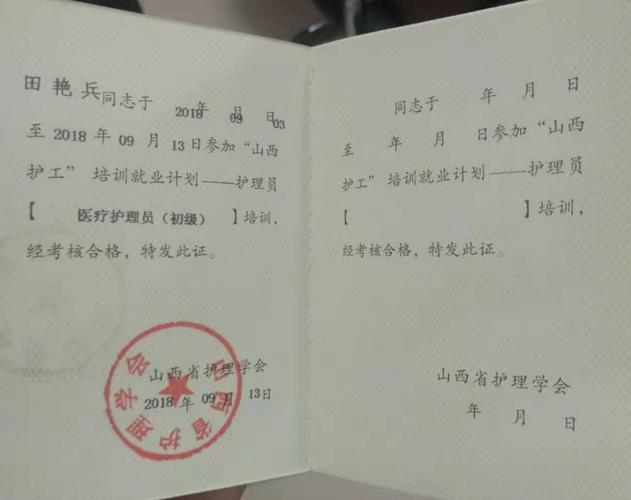 田艳兵同志于 2018年 09月 03日
至 2018 年 09 月 13 日参加“山西
护工”培训就业计划——护理员
【 医疗护理员（初级） 】培训，
经考核合格，特发此证。
山西省护理学会
2018 年 09 月 13日
山西省护理学会
同志于 年 月 日
至 年 月 日参加“山西
护工”培训就业计划——护理员
【 】培训，
经考核合格，特发此证。
山西省护理学会
年 月 日